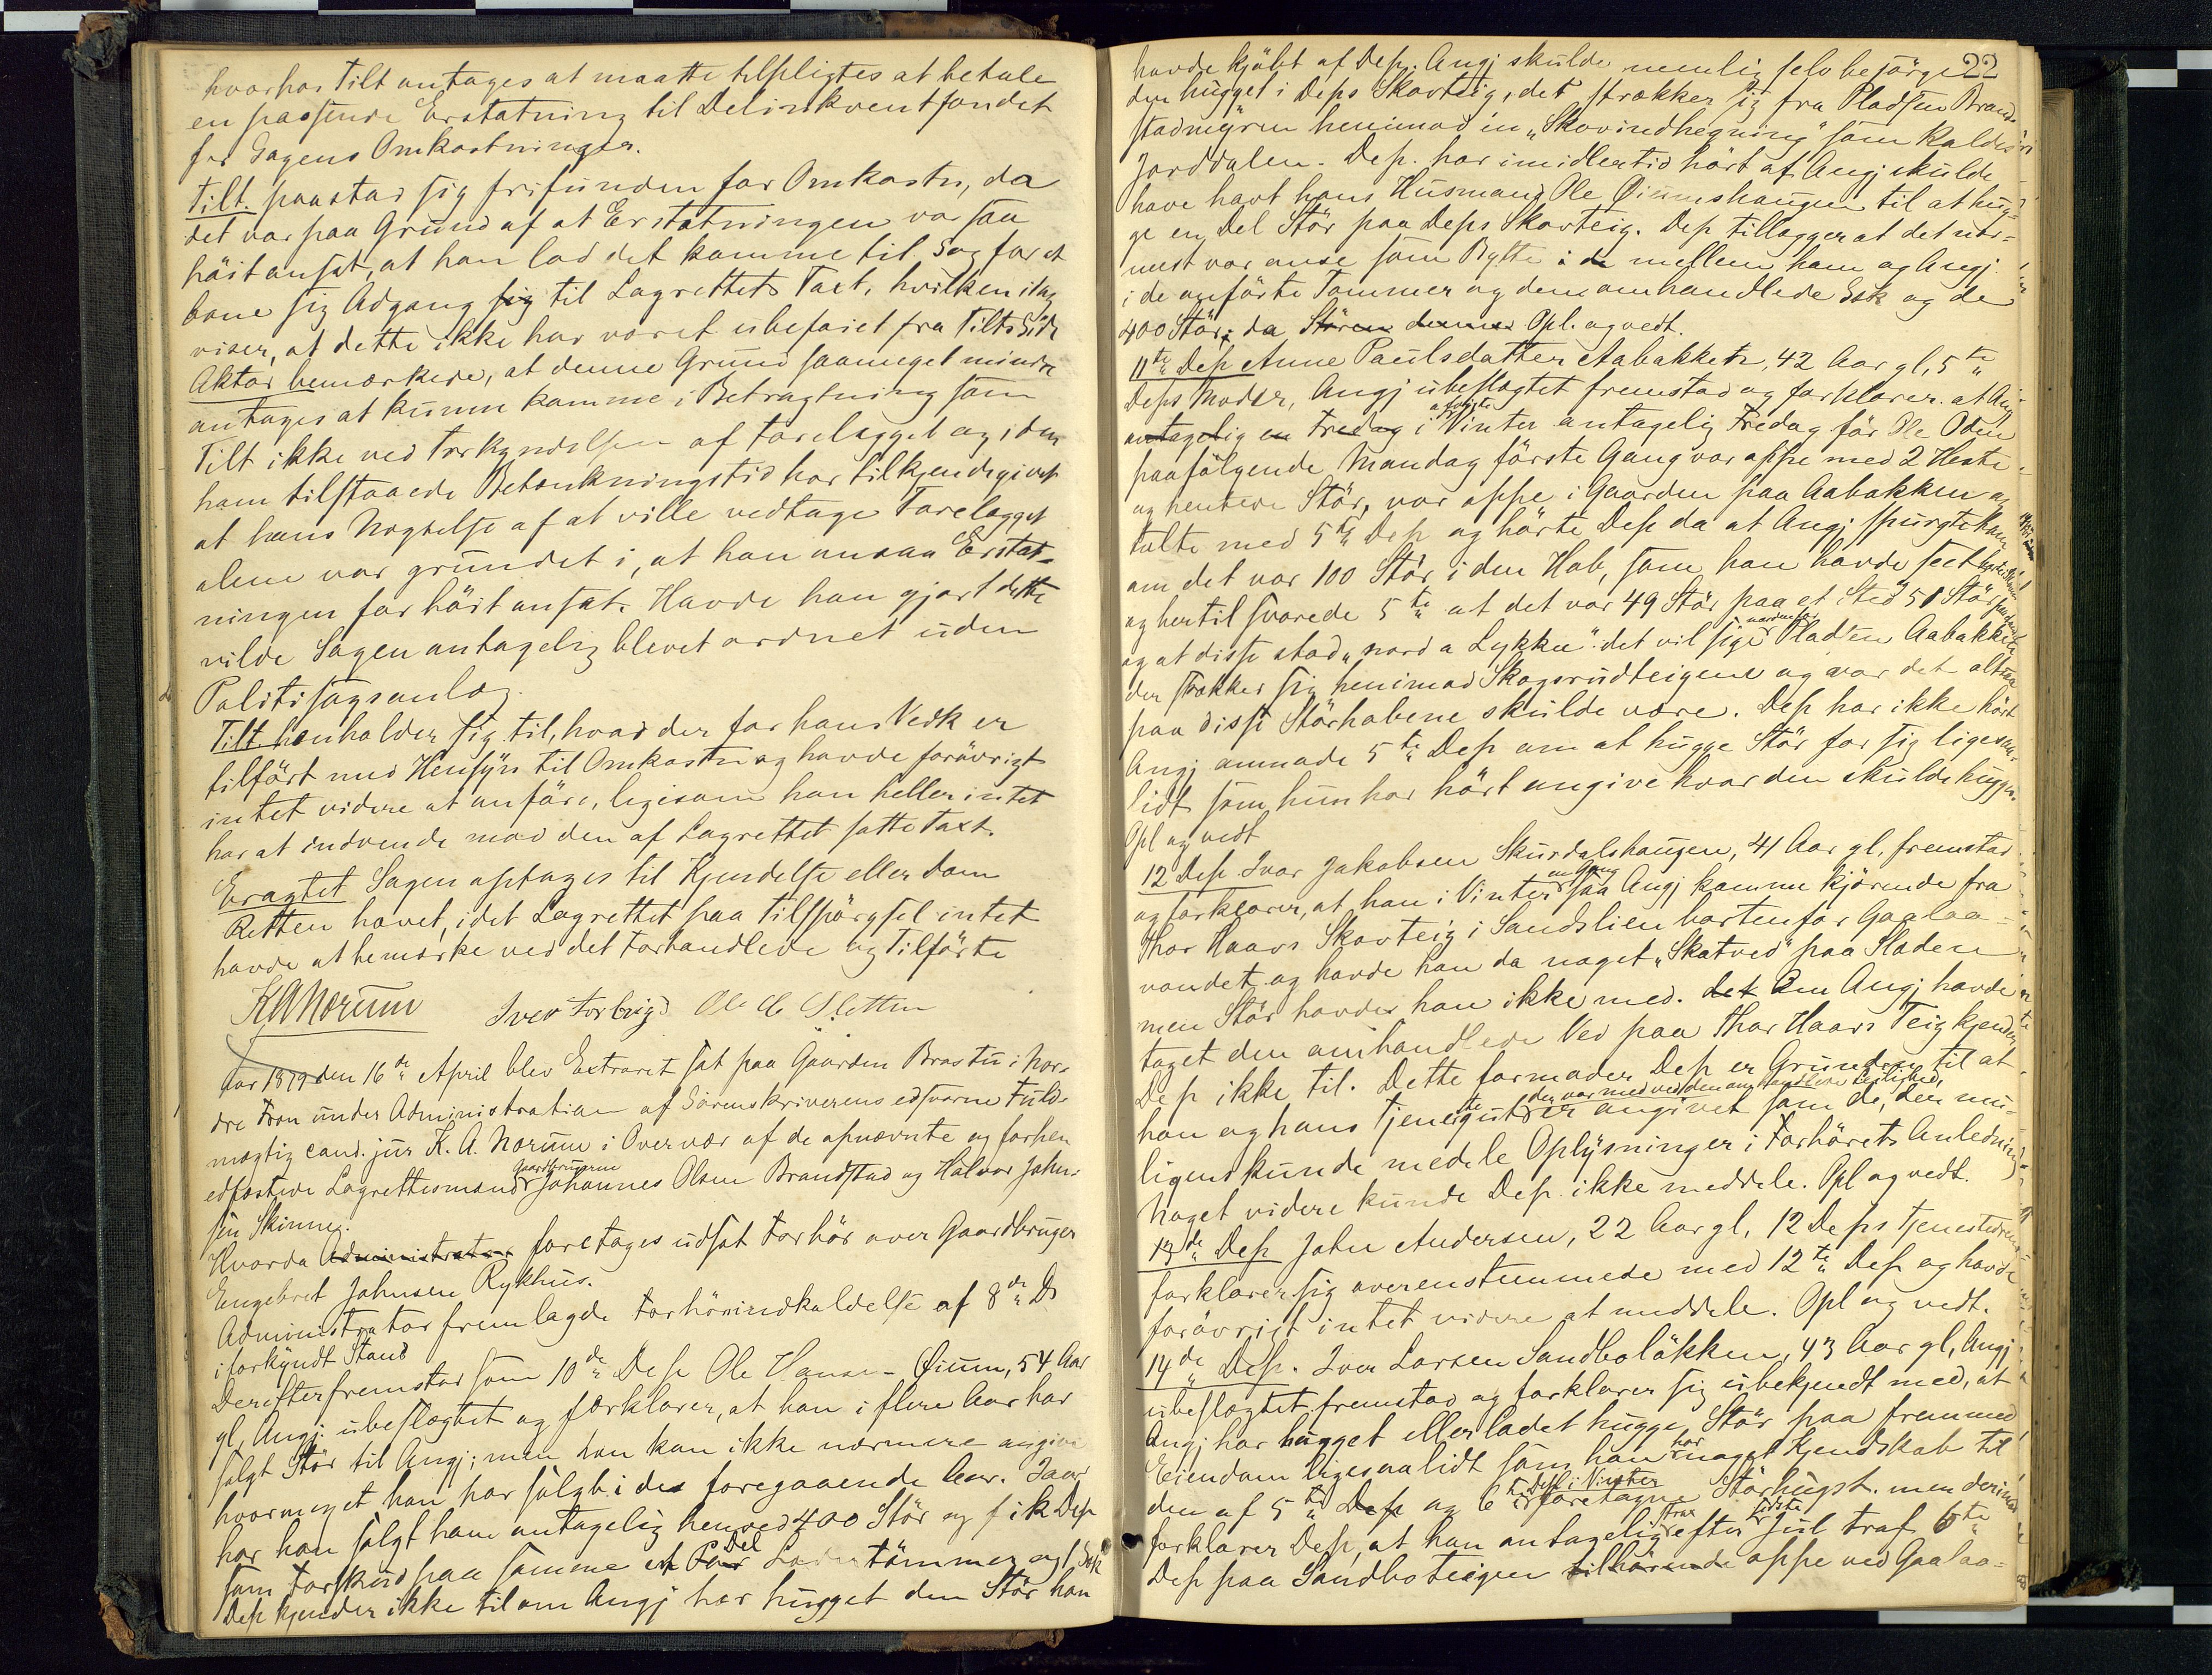 hvorhos Tilt antages at maatte tilpligtes at betale
en passende Erstatning til Delinkventfondet
for Sagens Omkostninger.
Tilt. paastod sig frifunden for Omkostn, da
det var paa Grund af at Erstatningen var saa
höit ansat, at han lod det komme til Sag for at
bane sig Adgang sig til Lagrettets Taxt, hvilken
viser, at dette ikke har været ubeföiet fra Tilts Side
Aktor bemærkede, at denne Grund saameget mindre
antages at kunne komme i Betragtning som
Tilt ikke ved Forkyndelsen af Forelægget og i den
ham tilstaaede Betænkningstid har tilkjendegivet
at hans Nægtelse af at ville vedtage Forelægget
alene var grundet i, at han ansaa Erstat-
ningen for höit ansat. Havde han gjort dette
vilde Sagen antagelig blevet ordnet uden
Politisagsanlæg.
Tilt. henholder sig til, hvad der for hans Vedk er
tilfört med Hensyn til Omkostn og havde forövrigt
intet videre at anföre, ligesom han heller intet
har at indvende mod den af Lagrettet satte Taxt.
Eragtet Sagen optages til Kjendelse eller Dom
Retten hævet, idet Lagrettet paa Tilspörgsel intet
havde at bemærke ved det Forhandlede og Tilförte
K A Norum Iver Forbrigd Ole O Sletten
Aar 1879 den 16de April blev Extraret sat paa Gaarden Brostu i Nor-
dre Fron under Administration af Sorenskriverens edsvorne Fuld-
mægtig cand. jur K. A. Norum i Overvær af de opnævnte og forhen
edfæstede Lagrettesmænd Gaardbrugerne Johannes Olsen Brandstad og Halvor John-
sen Skinne.
Hvorda Administrator foretages udsat Forhör over Gaardbruger
Engebret Johnsen Rykhus.
Administrator fremlagde Forhörsindkaldelse af 8de Ds
i forkyndt Stand
Derefter fremstod som 10de Dep Ole Hansen Öium, 54 Aar
gl, Angj. ubeslægtet og forklarer, at han i flere Aar har
solgt Stör til Angj; men han kan ikke nærmere angive
hvormeget han har solgt i de foregaaende Aar. Iaar
har han solgt ham antagelig henved 400 Stör og fik Dep
som Forskud paa samme et Par Del Ladetömmer og 1 Sæk
Dep kjender ikke til om Angj har hugget den Stör han
22
havde kjöbt af Dep. Angj skulde nemlig selv besörge
den hugget i Deps Skovteig, det strækker sig fra Pladsen Brand-
stadmyren henimod en "Skovindhegning" som kaldes
Jorddalen. Dep. har imidlertid hört af Angj skulde
have havt hans Husmand Ole Öiumshaugen til at hug-
ge en Del Stör paa Deps Skovteig. Dep tillægger at det nær-
mest var anse som Bytte i de mellem ham og Angj
i de anförte Tommer og den omhandlede Sæk og de
400 Stör; da Stören denne Opl. og vedt.
11te Dep Anne Paulsdatter Aabakken, 42 Aar gl, 5te
Deps Moder, Angj ubeslægtet fremstod og forklarer at Angj
antagelig en Fredag i afvigte Vinter antagelig Fredag för Ole Oden
paafölgende Mandag förste Gang var oppe med 2 Heste
og hentede Stör, var oppe i Gaarden paa Aabakken og
talte med 5te Dep og hörte Dep da at Angj spurgte ham
om det var 100 Stör i den Hob, som han havde seet
og hertil svarede 5te at det var 49 Stör paa et Sted 51 Stör
og at disse stod "nord a Lykku" det vil sige nordenfor Pladsen Aabakken
der strækker sig henimod Skogsrudteigene og var det altsaa
paa disse Störhobene skulde være. Dep har ikke hört
Angj anmode 5te Dep om at hugge Stör for sig ligesaa
lidt som hun har hört angive hvor den skulde hugges.
Opl og vedt
12 Dep Ivar Jakobsen Skurdalshaugen, 41 Aar gl, fremstod
og forklarer, at han i Vinter en Gang saa Angj komme kjörende fra
Thor Haavs Skovteig i Sandslien bortenfor Gaalaa-
vandet og havde han da noget "Skatved" paa Sladen
men Stör havde han ikke med. det Om Angj havde
taget den omhandlede Ved paa Thor Haavs Teig kjender
Dep ikke til. Dette formoder Dep er Grunden til at
han og hans Tjenestegut der var med ved den omhandlede Leilighed, er angivet som de, der mu-
ligens kunde meddele Oplysninger i Forhörets Anledning
Noget videre kunde Dep. ikke meddele. Opl og vedt.
13de Dep John Andersen, 22 Aar gl, 12 Deps Tjenestedreng
forklarer sig overenstemmede med 12te Dep og havde
forövrigt intet videre at meddele. Opl og vedt.
14de Dep. Iver Larsen Sandbolökken, 43 Aar gl, Angj
ubeslægtet fremstod og forklarer sig ubekjendt med, at
Angj har hugget eller ladet hugge Stör paa fremmed
Eiendom ligesaalidt som han har noget Kjendskab til
den af 5te Dep og 6te Dep i Vinter foretagne Störhugst. men derimod
forklarer Dep, at han antagelig strax efter sidste Jul traf 6te
Dep paa Sandboteigen tilhörende oppe ved Gaalaa-